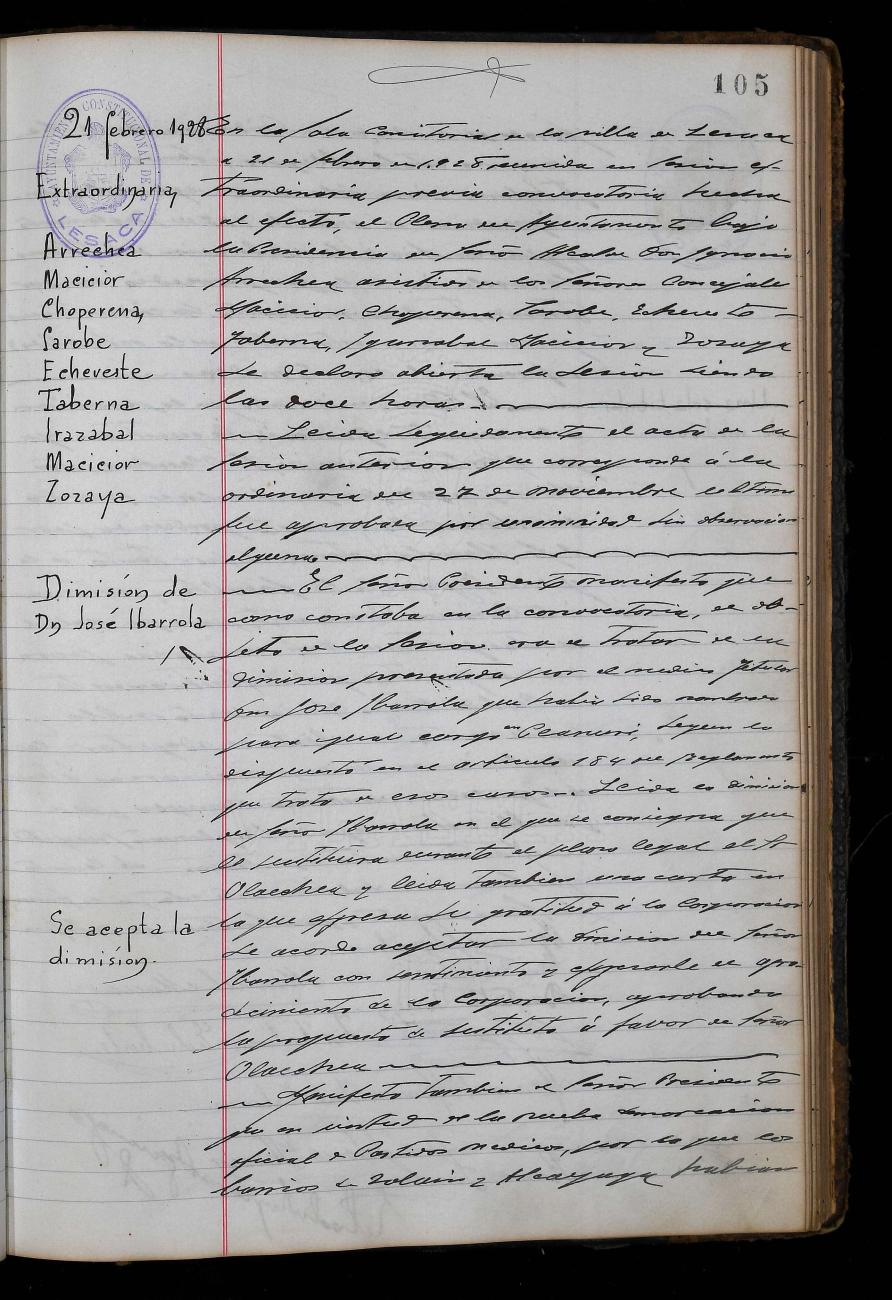 105
AYUNTAMIENTO CONSTITUCIONAL DE
LESACA
21 febrero 1928
Extraordinaria,
Arrechea
Macicior
Choperena,
Sarobe
Echeveste
Taberna
Irazabal
Macicior
Zozaya
En la Sala Consistorial de la villa de Lesaca
a 21 de febrero de 1.928, reunida en sesion ex-
traordinaria previa convocatoria hecha
al efecto, el Pleno del Ayuntamiento bajo
la Presidencia del Señor Alcalde Don Ignacio
Arrechea asistido de los Señores Concejales
Macicior, Choperena, Sarobe, Echeveste
Taberna, Macicior y Zozaya
se declaro abierta la sesion siendo
las doce horas.
Leida seguidamente el acta de la
sesion anterior que corresponde á la
ordinaria del 27 de noviembre ultimo
fue aprobada por unanimidad sin observacion
alguna.
Dimisión de
Dn José Ibarrola
El Señor Presidente manifesto que
como constaba en la convocatoria, el ob-
jeto de la sesion era el tratar de la
dimision presentada por el medico titular
Don Jose Ibarrola que habia sido nombrado
para igual cargo en segun lo
dispuesto en el articulo 184 del Reglamento
que trata de esos casos. Leida la dimision
del Señor Ibarrola en el que se consigna que
le sustituira durante el plazo legal el Sr
Olaechea y leida tambien una carta en
la que expresa su gratitud á la Corporacion
Se acepta la
dimisión.
se acordo aceptar la dimision del Señor
Ibarrola con sentimiento y expresarle el agra-
decimiento de la Corporacion, aprobando
la propuesta de sustituto á favor del Señor
Olaechea
Manifesto tambien el Señor Presidente
que en virtud de la nueva demarcacion
oficial de Partidos medicos, por la que los
barrios de Zalain y Alcayaga habian